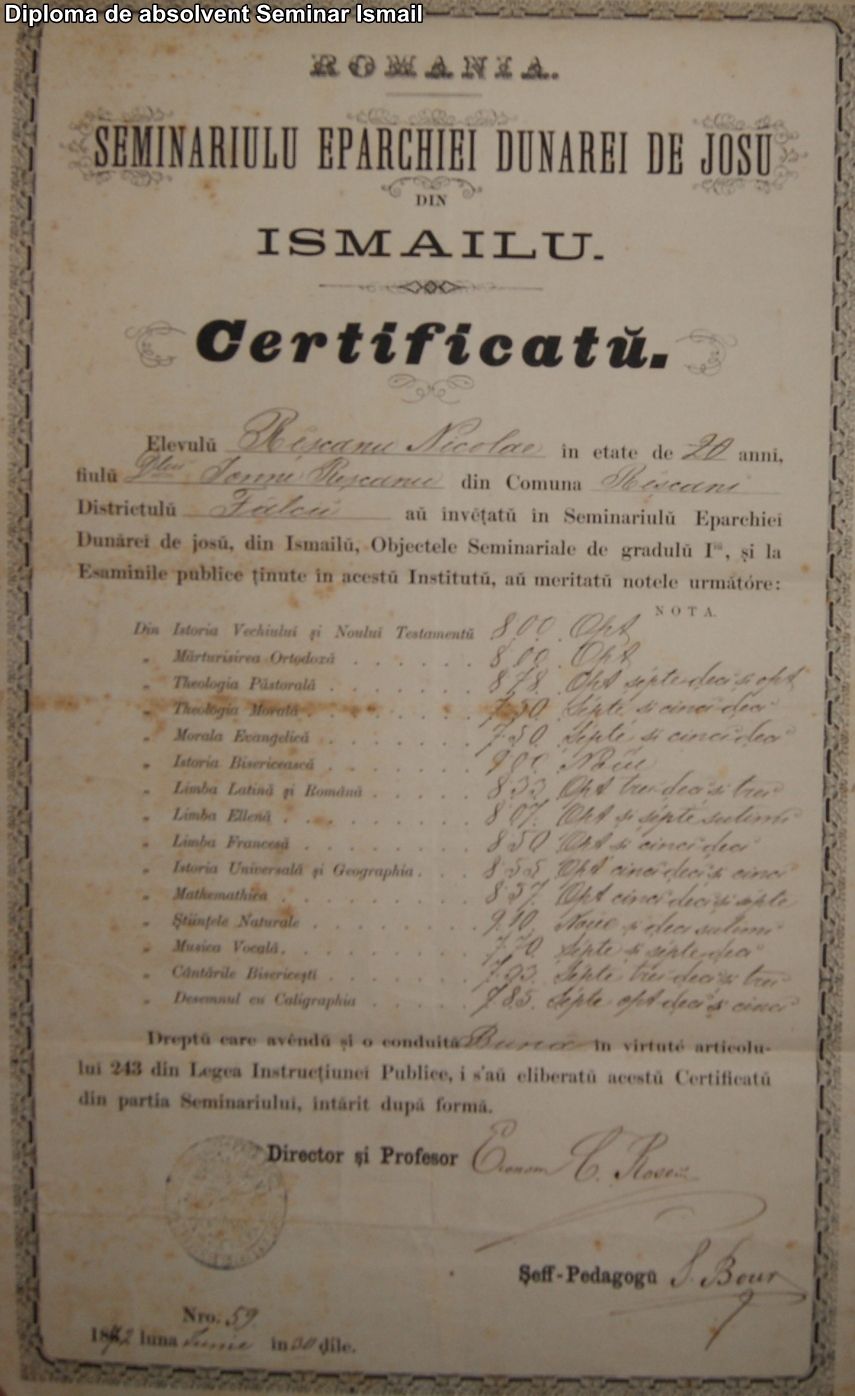 Diploma de absolvent Seminar Ismail
ROMANIA.
SEMINARIULU EPARCHIEI DUNAREI DE JOSŬ
DIN
ISMAILU.
Certificatŭ.
Elevulŭ Rêșcanu Nicolae în etate de 20 anni,
fiulŭ Ionne Reșcanu din Comuna Rêșcani
Districtulŭ Fălciŭ aŭ învĕțatŭ în Seminariulŭ Eparchiei
Dunărei de josŭ, din Ismailŭ, Objectele Seminariale de gradulŭ I, și la
Esaminile publice ținute în acestŭ Institutŭ, aŭ meritatŭ notele următóre:
NOTA.
Din Istoria Vechiului și Noului Testamentŭ 8,00. Opt
„ Mărturisirea Ortodoxă . . . . . . 8,00. Opt
„ Theologia Păstorală . . . . . . . 8,78. Opt septe-deci și opt
„ Theologia Morală . . . . . . . 7,50. Septe și cinci deci
„ Morala Evangelică . . . . . . . 7,50. Septe și cinci deci
„ Istoria Bisericească . . . . . . . 9,00. Nóue
„ Limba Latină și Română . . . . . 8,33. Opt trei-deci și trei
„ Limba Ellenă . . . . . . . . . 8,07. Opt și septe sutimi
„ Limba Francesă . . . . . . . . 8,50. Opt și cinci deci
„ Istoria Universală și Geographia . . . 8,55. Opt cinci deci și cinci
„ Mathemathica . . . . . . . . . 8,57. Opt cinci deci și septe
„ Științele Naturale . . . . . . . . 9,10. Nóue și deci sutimi
„ Musica Vocală. . . . . . . . . 7,70. Septe și septe-deci
„ Cântările Bisericești . . . . . . . Septe trei deci și trei
„ Desemnul cu Caligraphia . . . . . 7,85. Septe opt deci și cinci
Dreptŭ care avêndŭ și o conduită Bună în virtute articolu-
lui 243 din Legea Instrucțiunei Publice, i s'aŭ eliberatŭ acestŭ Certificatŭ
din partia Seminariului, întărit după formă.
Director și Profesor Econom C. Rosew
Șeff-Pedagogŭ S. Bour
Nro. 59
1872 luna Iunie în 30 dile.